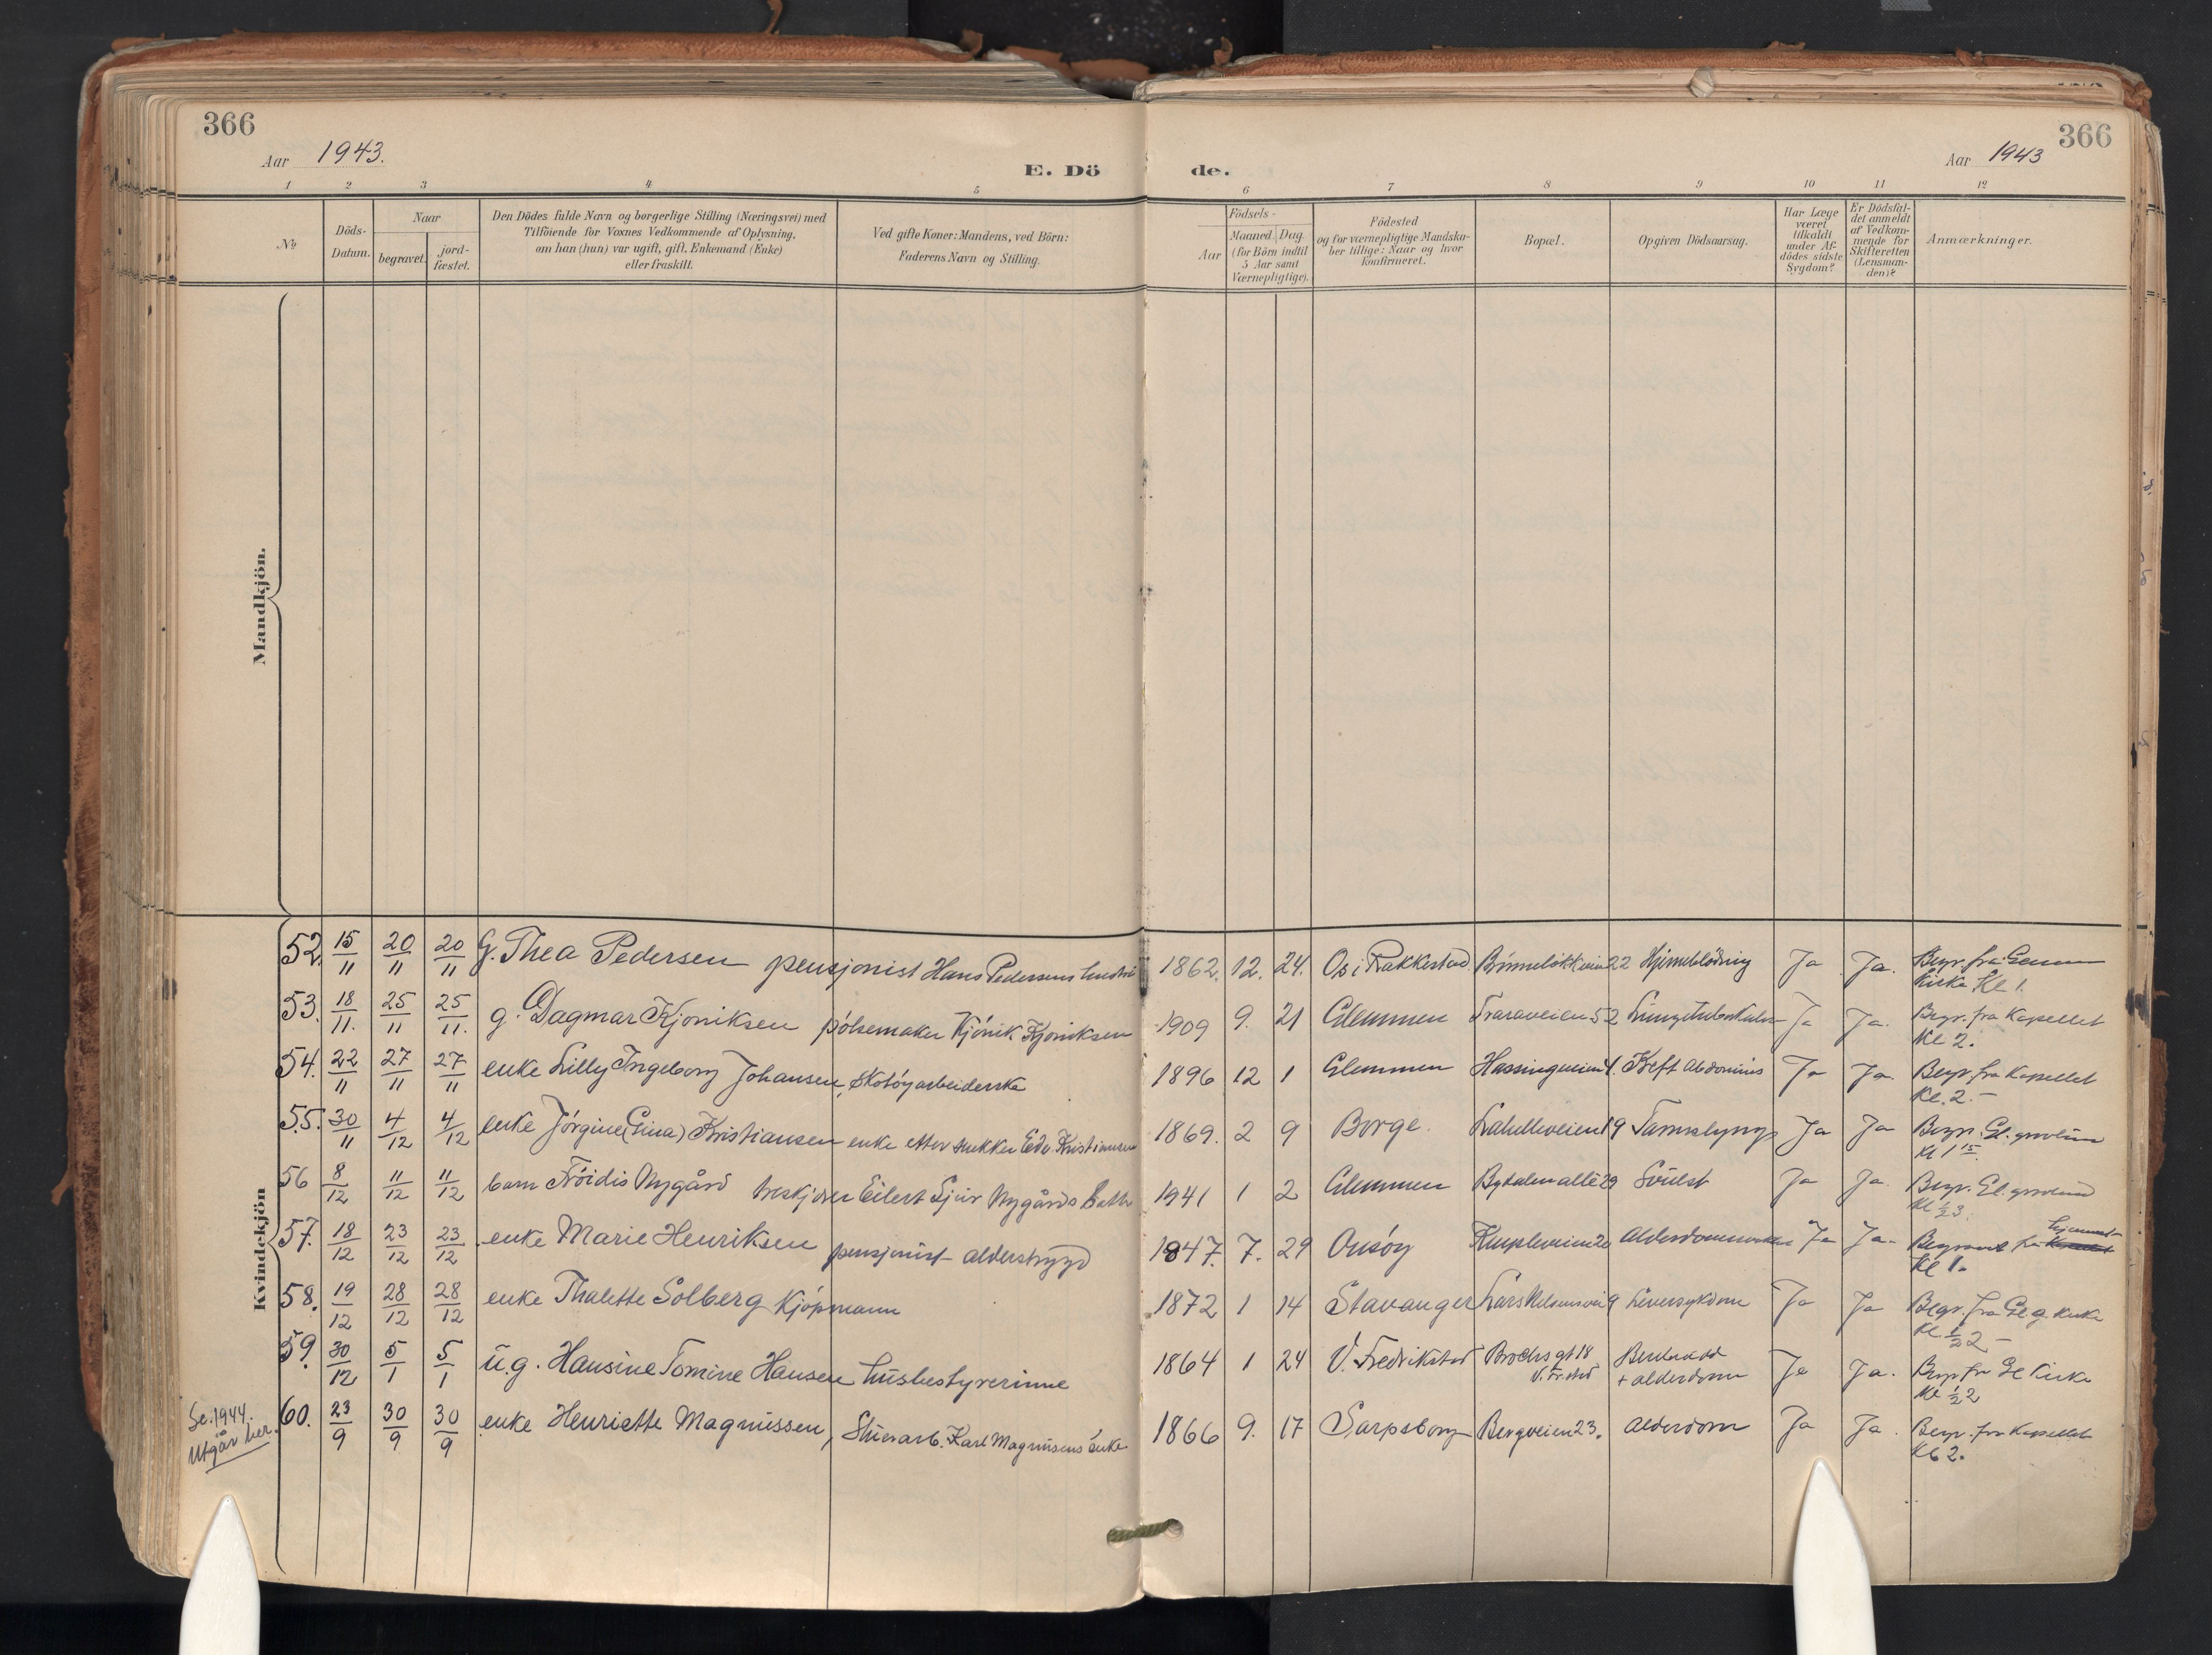 366
Aar 1943.
E. Dö
de.
Aar 1943
366
1 2 3 4 5 6 7 8 9 10 11 12
No
Döds-
Datum.
Naar
begravet.
jord-
fæstet.
Den Dödes fulde Navn og borgerlige Stilling (Næringsvei) med
Tilföiende for Voxnes Vedkommende af Oplysning,
om han (hun) var ugift, gift, Enkemand (Enke)
eller fraskilt.
Ved gifte Koner: Mandens, ved Börn:
Faderens Navn og Stilling.
Födsels-
Aar
Maaned. Dag.
(for Börn indtil
5 Aar samt
Værnepligtige).
Födested
og for værnepligtige Mandska-
ber tillige: Naar og hvor
konfirmeret.
Bopæl.
Opgiven Dödsaarsag.
Har Læge
været
tilkaldt
under Af-
dödes sidste
Sygdom?
Er Dödsfal-
det anmeldt
af Vedkom-
mende for
Skifteretten
(Lensman-
den)?
Anmærkninger.
Mandkjön.
Kvindekjön
52. 15/11 20/11 20/11 G. Thea Pedersen pensjonist Hans Pedersens hustru 1862. 12. 24. Os i Rakkestad 22 Hjerneblödning Ja Ja. Begr. fra
Kirke Kl 1.
53. 18/11. 25/11 25/11. g. Dagmar Kjöniksen pölsemaker Kjönik Kjöniksen 1909 9. 21 Glemmen Traraveien 52 Lungetuberkulose Ja Ja. Begr. fra Kapellet
Kl 2.
54. 22/11 27/11 27/11 enke Lilly Ingeborg Johansen, skotöyarbeiderske 1896 12 1 Glemmen Kreft Abdominis Ja Ja Begr. fra Kapellet
Kl. 2. -
55. 30/11 4/12 4/12 enke Jörgine (Gina) Kristiansen enke etter Edv. Kristiansen 1869. 2 9 Borge. 19 Tarmslyng Ja Ja Begr. Gl. gravlund
Kl 1 15.
56 8/12 11/12 11/12 barn Fröidis Nygård Eilert Nygårds datter 1941 1 2 Glemmen 29 Svulst Ja Ja Begr. Gl. gravlund
Kl ½ 3.
57. 18/12 23/12 23/12 enke Marie Henriksen pensjonist - alderstrygd 1847. 7. 29 Onsöy Ja Ja. fra hjemmet
Kl 1.
58. 19/12 28/12 28/12 enke Thalette Solberg Kjöpmann 1872 1 14 Stavanger Lars 9 Leversykdom Ja Ja Begr. fra Gl. g. kirke
Kl. ½ 2 -
59. 30/12 5/1 5/1 u.g. Hansine Tomine Hansen husbestyrerinne 1864 1 24 V. Fredrikstad Brochs gt 18 Benbrudd Ja Ja. Begr fra Gl Kirke
V. Fr.stad + alderdom Kl ½ 2
Se. 1944.
Utgår her.
60. 23/9 30/9 30/9 enke Henriette Magnussen, Stuerarb. Karl Magnussens enke 1866 9. 17 Sarpsborg Bergveien 23. Alderdom Ja Ja. Begr. fra Kapellet
Kl 2.